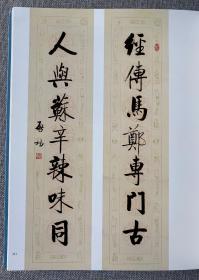 經傳馬鄭專门古
人與蘇辛辣味同
啟功